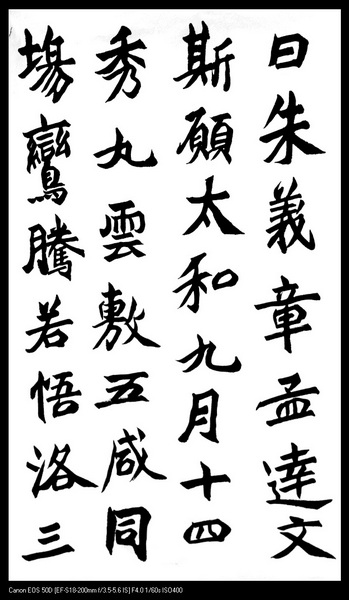 日朱義章孟達文
斯願太和九月十四
秀丸雲敷五咸同
場鸞騰若悟洛三
Canon EOS 50D [EF-S18-200mm f/3.5-5.6 IS] F4.0 1/60s ISO400